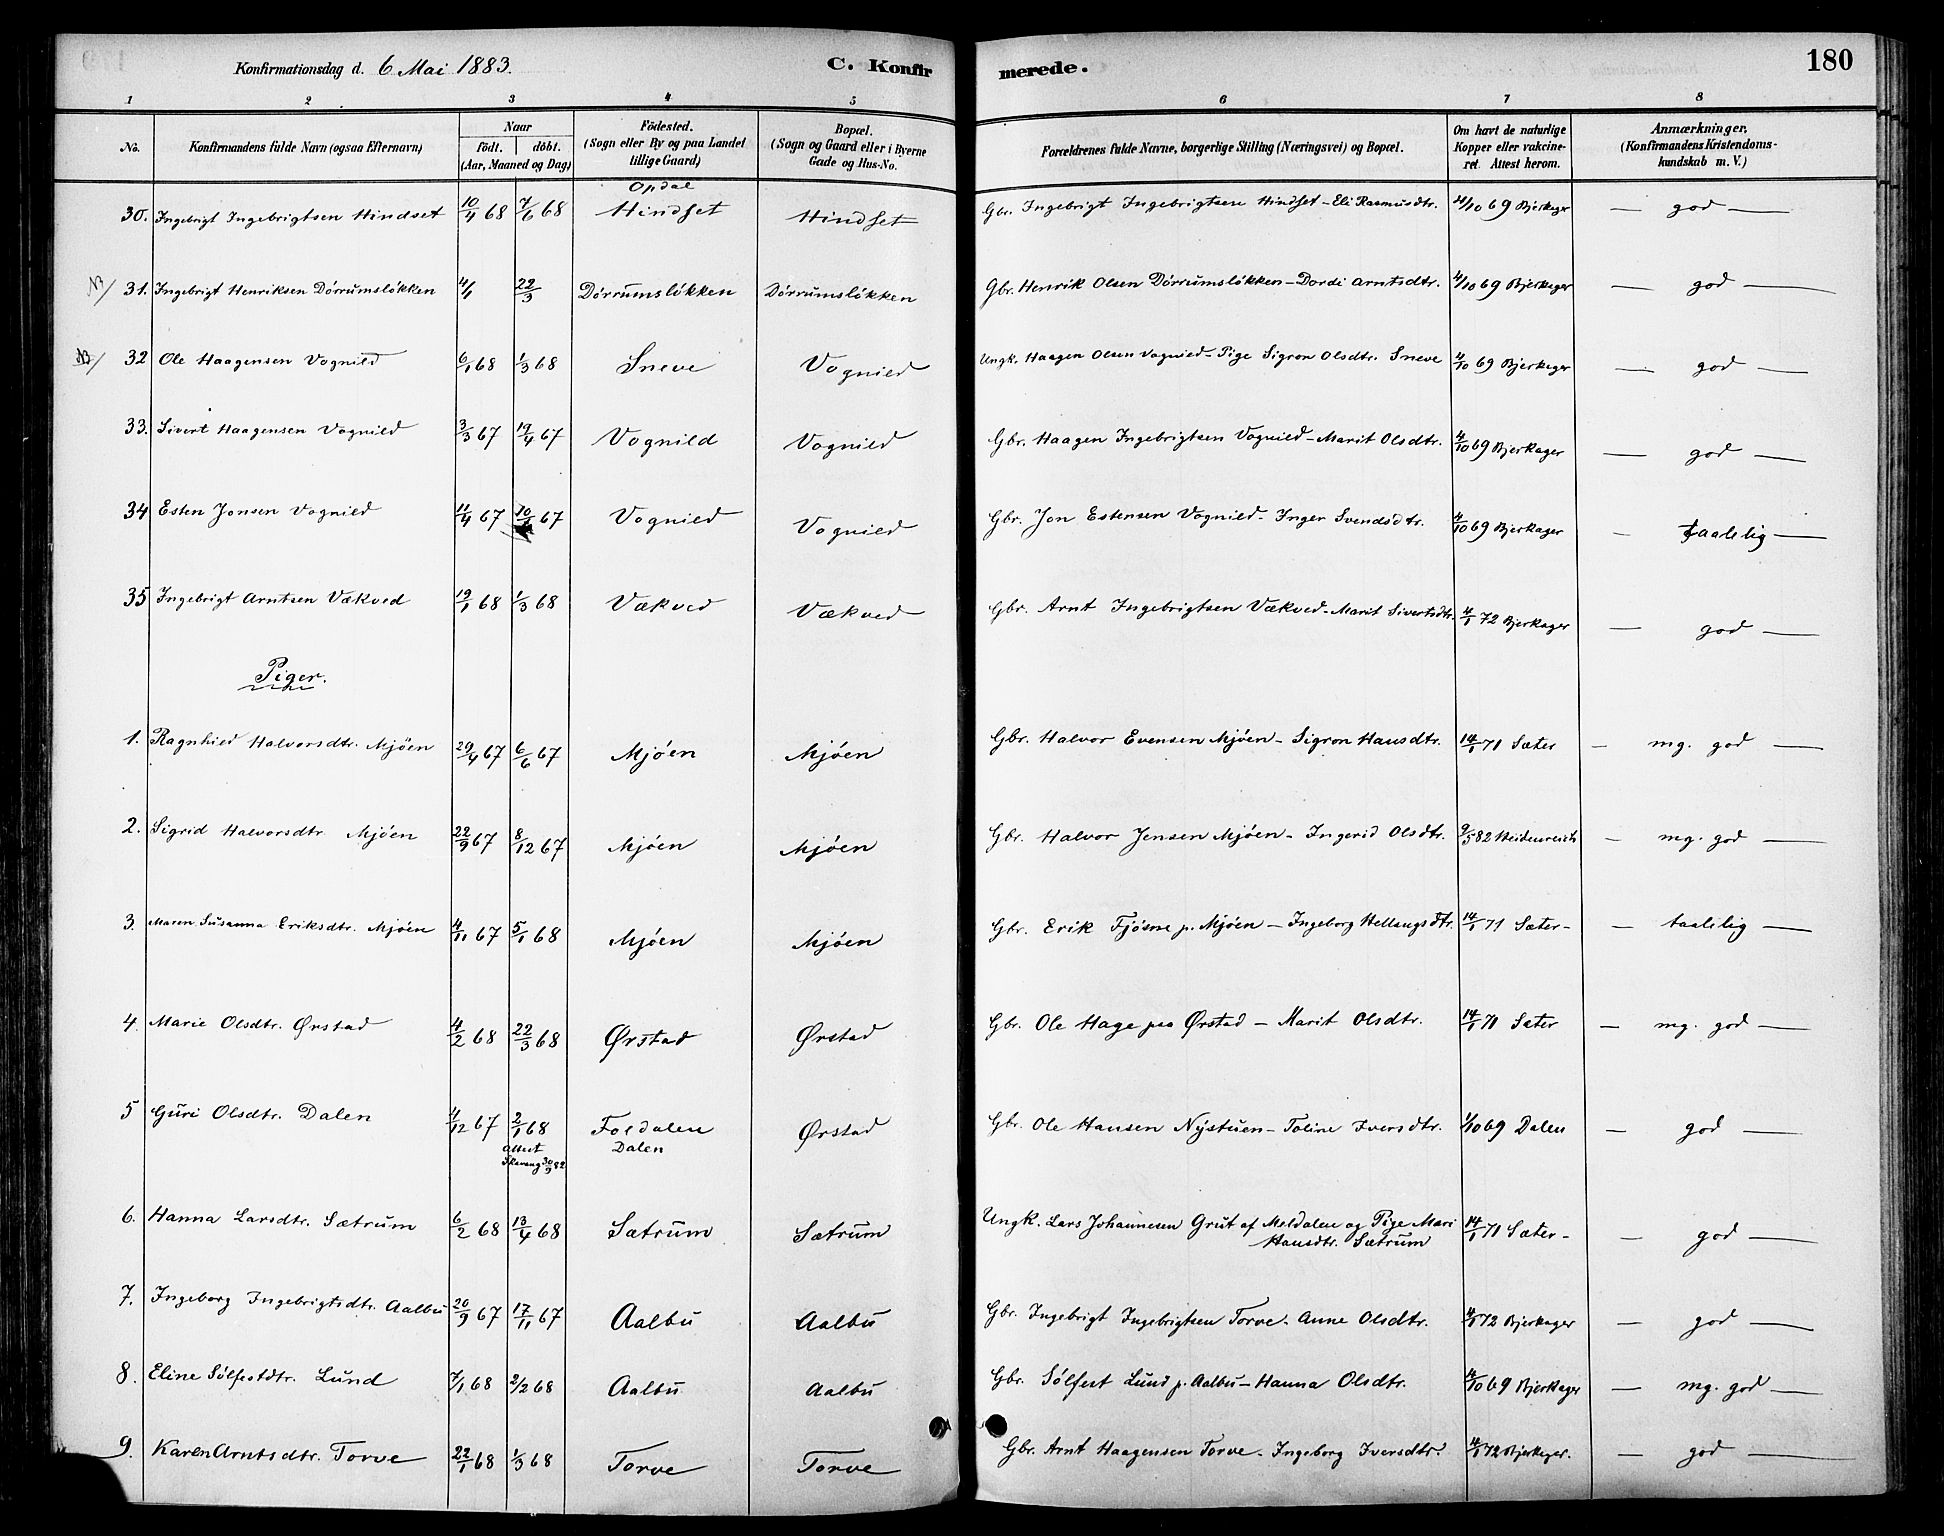 Konfirmationsdag d. 6 Mai 1883. C. Konfirmerede. 180
1 2 3 4 5 6 7 8
No. Konfirmandens fulde Navn (ogsaa Efternavn) Naar födt. döbt. (Aar, Maaned og Dag) Födested. (Sogn eller By og paa Landet tillige Gaard) Bopæl. (Sogn og Gaard eller i Byerne Gade og Hus-No. Forældrenes fulde Navne, borgerlige Stilling (Næringsvei) og Bopæl. Om havt de naturlige Kopper eller vakcineret. Attest herom. Anmærkninger. (Konfirmandens Kristendomskundskab m. V.)
30. Ingebrigt Ingebrigtsen Hindset 10/4 68 7/6 68 Opdal Hindset Hindset Gbr. Ingebrigt Ingebrigtsen Hindset - Eli Rasmusdtr. 4/10 69 Bjerkager — god —
NB/ 31. Ingebrigt Henriksen Dörrumslökken 4/1 22/3 Dörrumslökken Dörrumslökken Gbr. Henrik Olsen Dörrumslökken - Dordi Arntsdtr. 4/10 69 Bjerkager — god —
NB/ 32 Ole Haagensen Vognild 6/1 68 1/3 68 Sneve Vognild Ungk. Haagen Olsen Vognild - Pige Sigron Olsdtr. Sneve 4/10 69 Bjerkager — god —
33. Sivert Haagensen Vognild 3/3 67 19/4 67 Vognild Vognild Gbr. Haagen Ingebrigtsen Vognild - Marit Olsdtr. 4/10 69 Bjerkager — god —
34 Esten Jonsen Vognild 11/4 67 10/ 67 Vognild Vognild Gbr. Jon Estensen Vognild - Inger Svendsdtr. 4/10 69 Bjerkager — taalelig —
35 Ingebrigt Arntsen Vækved 19/1 68 1/3 68 Vækved Vækved Gbr. Arnt Ingebrigtsen Vækved - Marit Sivertsdtr. 4/1 72 Bjerkager — god —
Piger.
1. Ragnhild Halvorsdtr. Mjöen 29/4 67 6/6 67 Mjöen Mjöen Gbr. Halvor Evensen Mjöen - Sigron Hansdtr. 14/1 71 Sæter — mg. god —
2. Sigrid Halvorsdtr. Mjöen 22/9 67 8/12 67 Mjöen Mjöen Gbr. Halvor Jensen Mjöen - Ingerid Olsdtr. 9/5 82 Heidenreich — mg. god —
3. Maren Susanna Eriksdtr. Mjöen 4/11 67 5/1 68 Mjöen Mjöen Gbr. Erik Fjösne p. Mjöen - Ingeborg Hellaugsdtr. 14/1 71 Sæter - — taalelig —
4. Marie Olsdtr. Ørstad 4/2 68 22/3 68 Ørstad Ørstad Gbr. Ole Hage paa Ørstad - Marit Olsdtr. 14/1 71 Sæter — mg. god —
5 Guri Olsdtr. Dalen 4/12 67 2/1 68 Attest Foldalen Dalen Ørstad Gbr. Ole Hansen Nystuen - Toline Iversdtr. 1/10 69 Dalen — god —
6. Hanna Larsdtr. Sætrum 6/2 68 13/4 68 Sætrum Sætrum Ungk. Lars Johannesen Grut af Meldalen og Pige Mari Hansdtr. Sætrum 14/1 71 Sæter - — god —
7. Ingeborg Ingebrigtsdtr. Aalbu 20/9 67 17/11 67 Aalbu Aalbu Gbr. Ingebrigt Ingebrigtsen Torve. Anne Olsdtr. 4/1 72 Bjerkager — god —
8. Eline Sölfestdtr. Lund 7/1 68 2/2 68 Aalbu Aalbu Gbr. Sölfest Lund p. Aalbu - Hanna Olsdtr. 4/10 69 Bjerkager — mg. god —
9. Karen Arntsdtr. Torve 22/1 68 1/3 68 Torve Torve Gbr. Arnt Haagensen Torve. Ingeborg Iversdtr. 4/1 72 Bjerkager. — god —